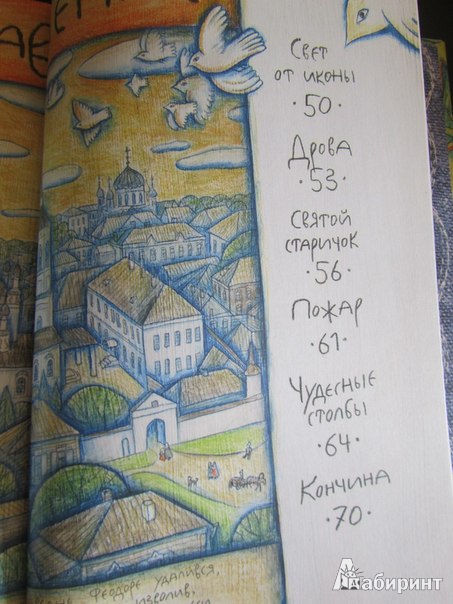 АЕ
Свет
от иконы
·50·
Дрова
·53·
Святой
старичок
·56·
Пожар
·61·
Чудесные
столбы
·64·
Кончина
·70·
Феодоре удалився,
изволив,
Лабиринт